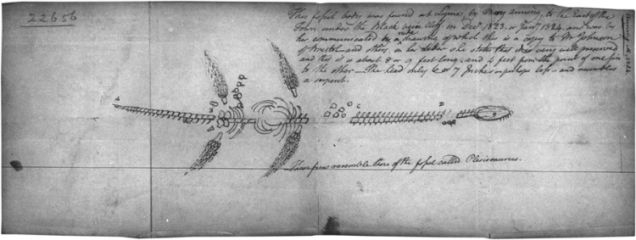 22656
This fossil body was found at Lyme, by Mary Anning, to the East of the
Town under the Black Ven cliff in Decr. 1823, or Janr. 1824, and was by
her communicated by a drawing of which this is a copy to Mr Johnson
of Bristol and others, in her letter she states this was very well preserved
and this is about 8 or 9 feet long, and 5 feet from the point of one fin
to the other — The head only 6 or 7 Inches or perhaps less — and resembles
a serpent.
These fins resemble those of the fossil called Plesiosaurus.